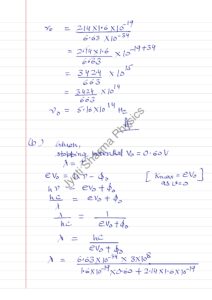 ν₀ = 2.14 × 1.6 × 10⁻¹⁹ / 6.63 × 10⁻³⁴
= 2.14 × 1.6 / 6.63 × 10⁻¹⁹⁺³⁴
= 3424 / 663 × 10¹⁵
= 3424 / 663 × 10¹⁴
ν₀ = 5.16 × 10¹⁴ Hz
(b) Given,
stopping potential V₀ = 0.60V
λ = ?
eV₀ = hν - ϕ₀ [ Kmax = eV₀
hν = eV₀ + ϕ₀ as v=0 ]
hc / λ = eV₀ + ϕ₀
λ / hc = 1 / eV₀ + ϕ₀
λ = hc / eV₀ + ϕ₀
λ = 6.63 × 10⁻³⁴ × 3 × 10⁸ / 1.6 × 10⁻¹⁹ × 0.60 + 2.14 × 1.6 × 10⁻¹⁹
Sharma Physics